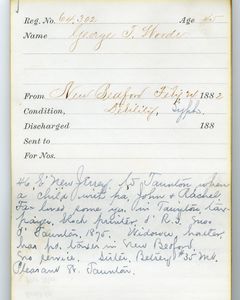 Reg. No. 64,302 Age 45
Name George T.
From New Bedford Feb'y 1882
Condition, Debility, Syph.
Discharged 188
Sent to
For Nos.
46 E. New Jersey, to Taunton when
a child with pa, John & Rachel.
Fa. owned some yrs. in Taunton tax-
paying. Block printer, d. R.I. Mo
d. Taunton, 1870. Widower, hostler
has pd. taxes in New Bedford,
no service. Sister, Betsey #35 Mt.
Pleasant St. Taunton.